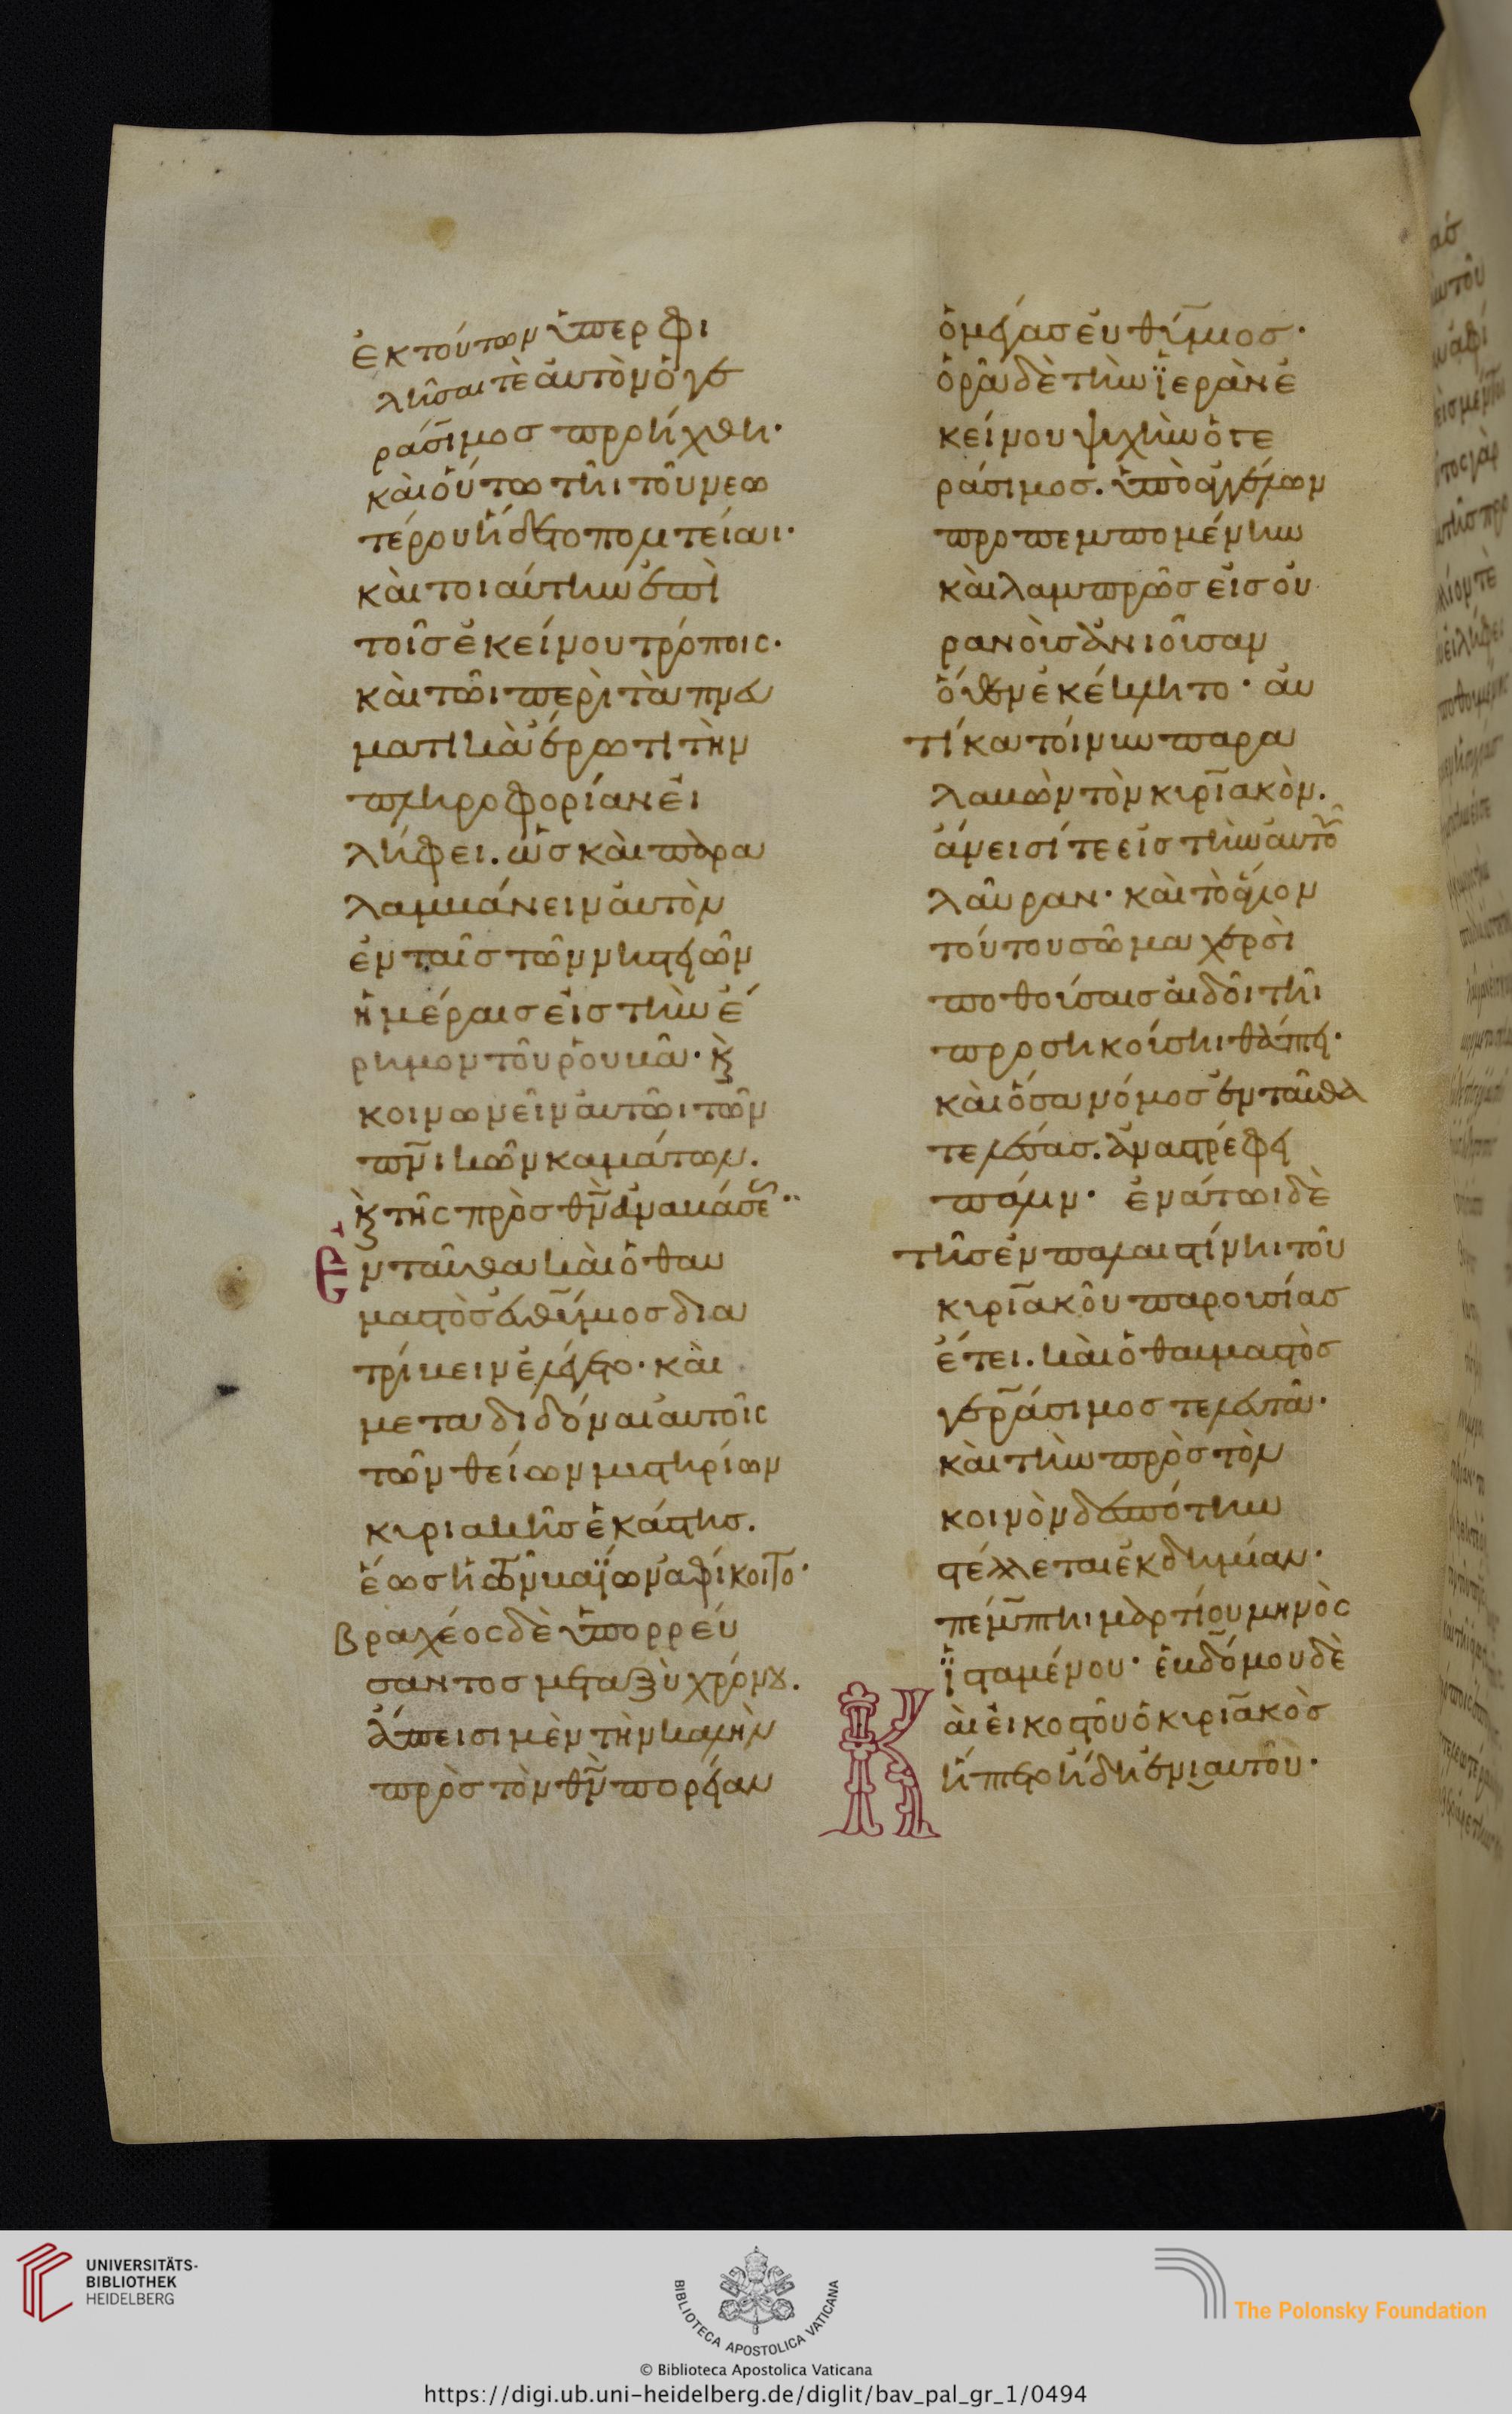 ἐκ τούτων ὑπερφι
λῆσαί τε αὐτὸν ὁ γε
ράσιμος προήχθη·
καὶ οὕτω τῆι τοῦ νεω
τέρου ἥδετο πολιτείαι·
καὶ τοιαύτην ἐπὶ
τοῖς ἐκείνου τρόποις·
καὶ τῶι περὶ τὰ πνευ
ματικὰ ἔρωτι τὴν
πληροφορίαν εἰ
λήφει. ὡς καὶ παρα
λαμβάνειν αὐτὸν
ἐν ταῖς τῶν νηστειῶν
ἡμέραις εἰς τὴν ἔ
ρημον τοῦ ῥουβᾶ· κ̀
κοινωνεῖν αὐτῶι τῶν
πν̅ικῶν καμάτων.
κ̀ τῆς πρὸς θν̅ ἀναβάσεως··
Ἐνταῦθα καὶ ὁ θαυ
μαστὸς εὐθύμιος δια
τρίβειν εἵλετο· καὶ
μεταδιδόναι αὐτοῖς
τῶν θείων μυστηρίων
κυριακῆς ἑκάστης.
ἕως ἡ τῶν βαΐων ἀφίκοιτο·
Βραχέος δὲ ὑπορρεύ
σαντος μεταξὺ χρόνου.
ἄπεισι μὲν τὴν καλὴν
πρὸς τὸν θν̅ πορείαν
ὁ μέγας εὐθύμιος·
ὁρᾶ δὲ τὴν ϊερὰν ἐ
κείνου ψυχὴν ὁ γε
ράσιμος. ὑπὸ ἀγγέλων
προπεμπομένην
καὶ λαμπρῶς εἰς οὐ
ρανοὺς ἀνιοῦσαν
ὅθεν ἐκέκλητο· αὐ
τίκα τοίνυν παρα
λαβὼν τὸν κυριακὸν.
ἄνεισί τε εἰς τὴν αὐτοῦ
λαῦραν· καὶ τὸ ἅγιον
τούτου σῶμα χερσὶ
ποθούσαις αἰδοῖ τῆι
προσηκούσηι θάπτει·
καὶ ὅσα νόμος ἐνταῦθα
τελέσας. ἀναστρέφει
πάλιν· ἐνάτωι δὲ
τῆς ἐν παλαιστίνηι τοῦ
κυριακοῦ παρουσίας
ἔτει. καὶ ὁ θαυμαστὸς
γεράσιμος τελευτᾶ·
καὶ τὴν πρὸς τὸν
κοινὸν δεσπότην
στέλλεται ἐκδημίαν·
πέμπτηι μαρτίου μηνὸς
ϊσταμένου· ἑβδόμου δὲ
Καὶ εἰκοστοῦ ὁ κυριακὸς
ἥπτετο ἤδη ἐνιαυτοῦ·
UNIVERSITÄTS-
BIBLIOTHEK
HEIDELBERG
BIBLIOTECA APOSTOLICA VATICANA
The Polonsky Foundation
© Biblioteca Apostolica Vaticana
https://digi.ub.uni-heidelberg.de/diglit/bav_pal_gr_1/0494